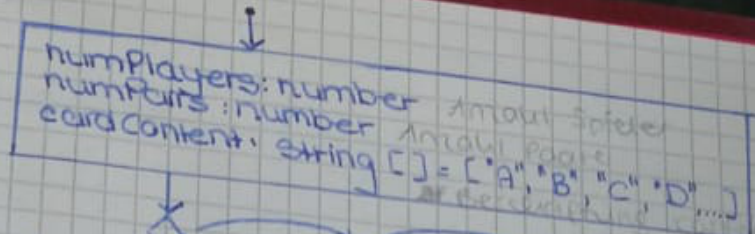 numPlayers: number Anzahl Spieler
numPairs: number Anzahl Paare
cardContent: string [] = ["A", "B", "C", "D",....]